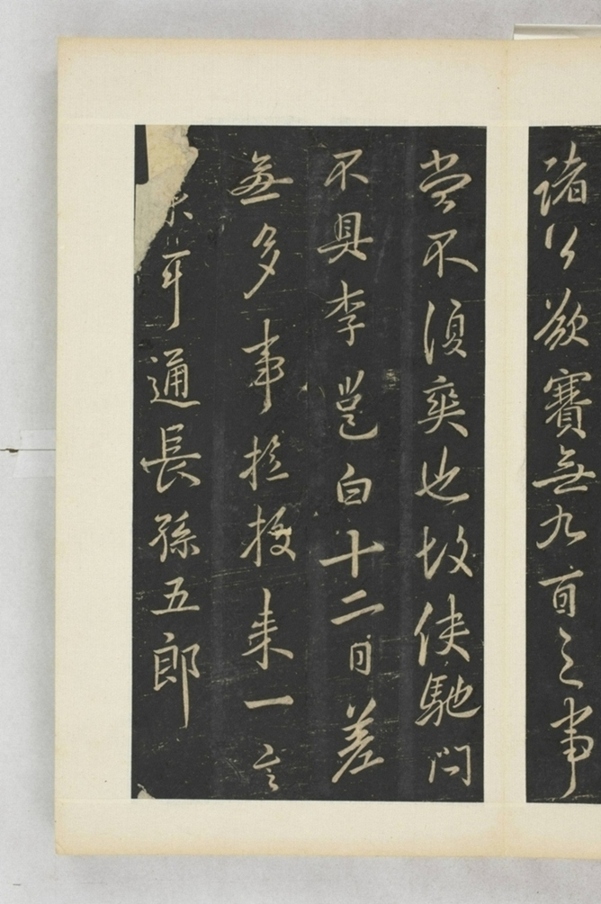 諸公欲賽無九百之事
嘗不須爽也故使馳問
不具李邕白十二日差
無多事捡授来一言
耳通長孫五郎